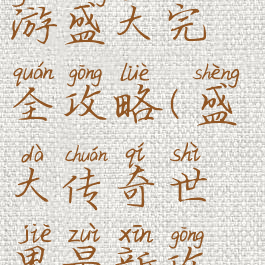 游盛大完
quán gōng lüè shèng
全攻略(盛
dà chuán qí shì
大传奇世
jiè zuì xīn gōng
界最新攻